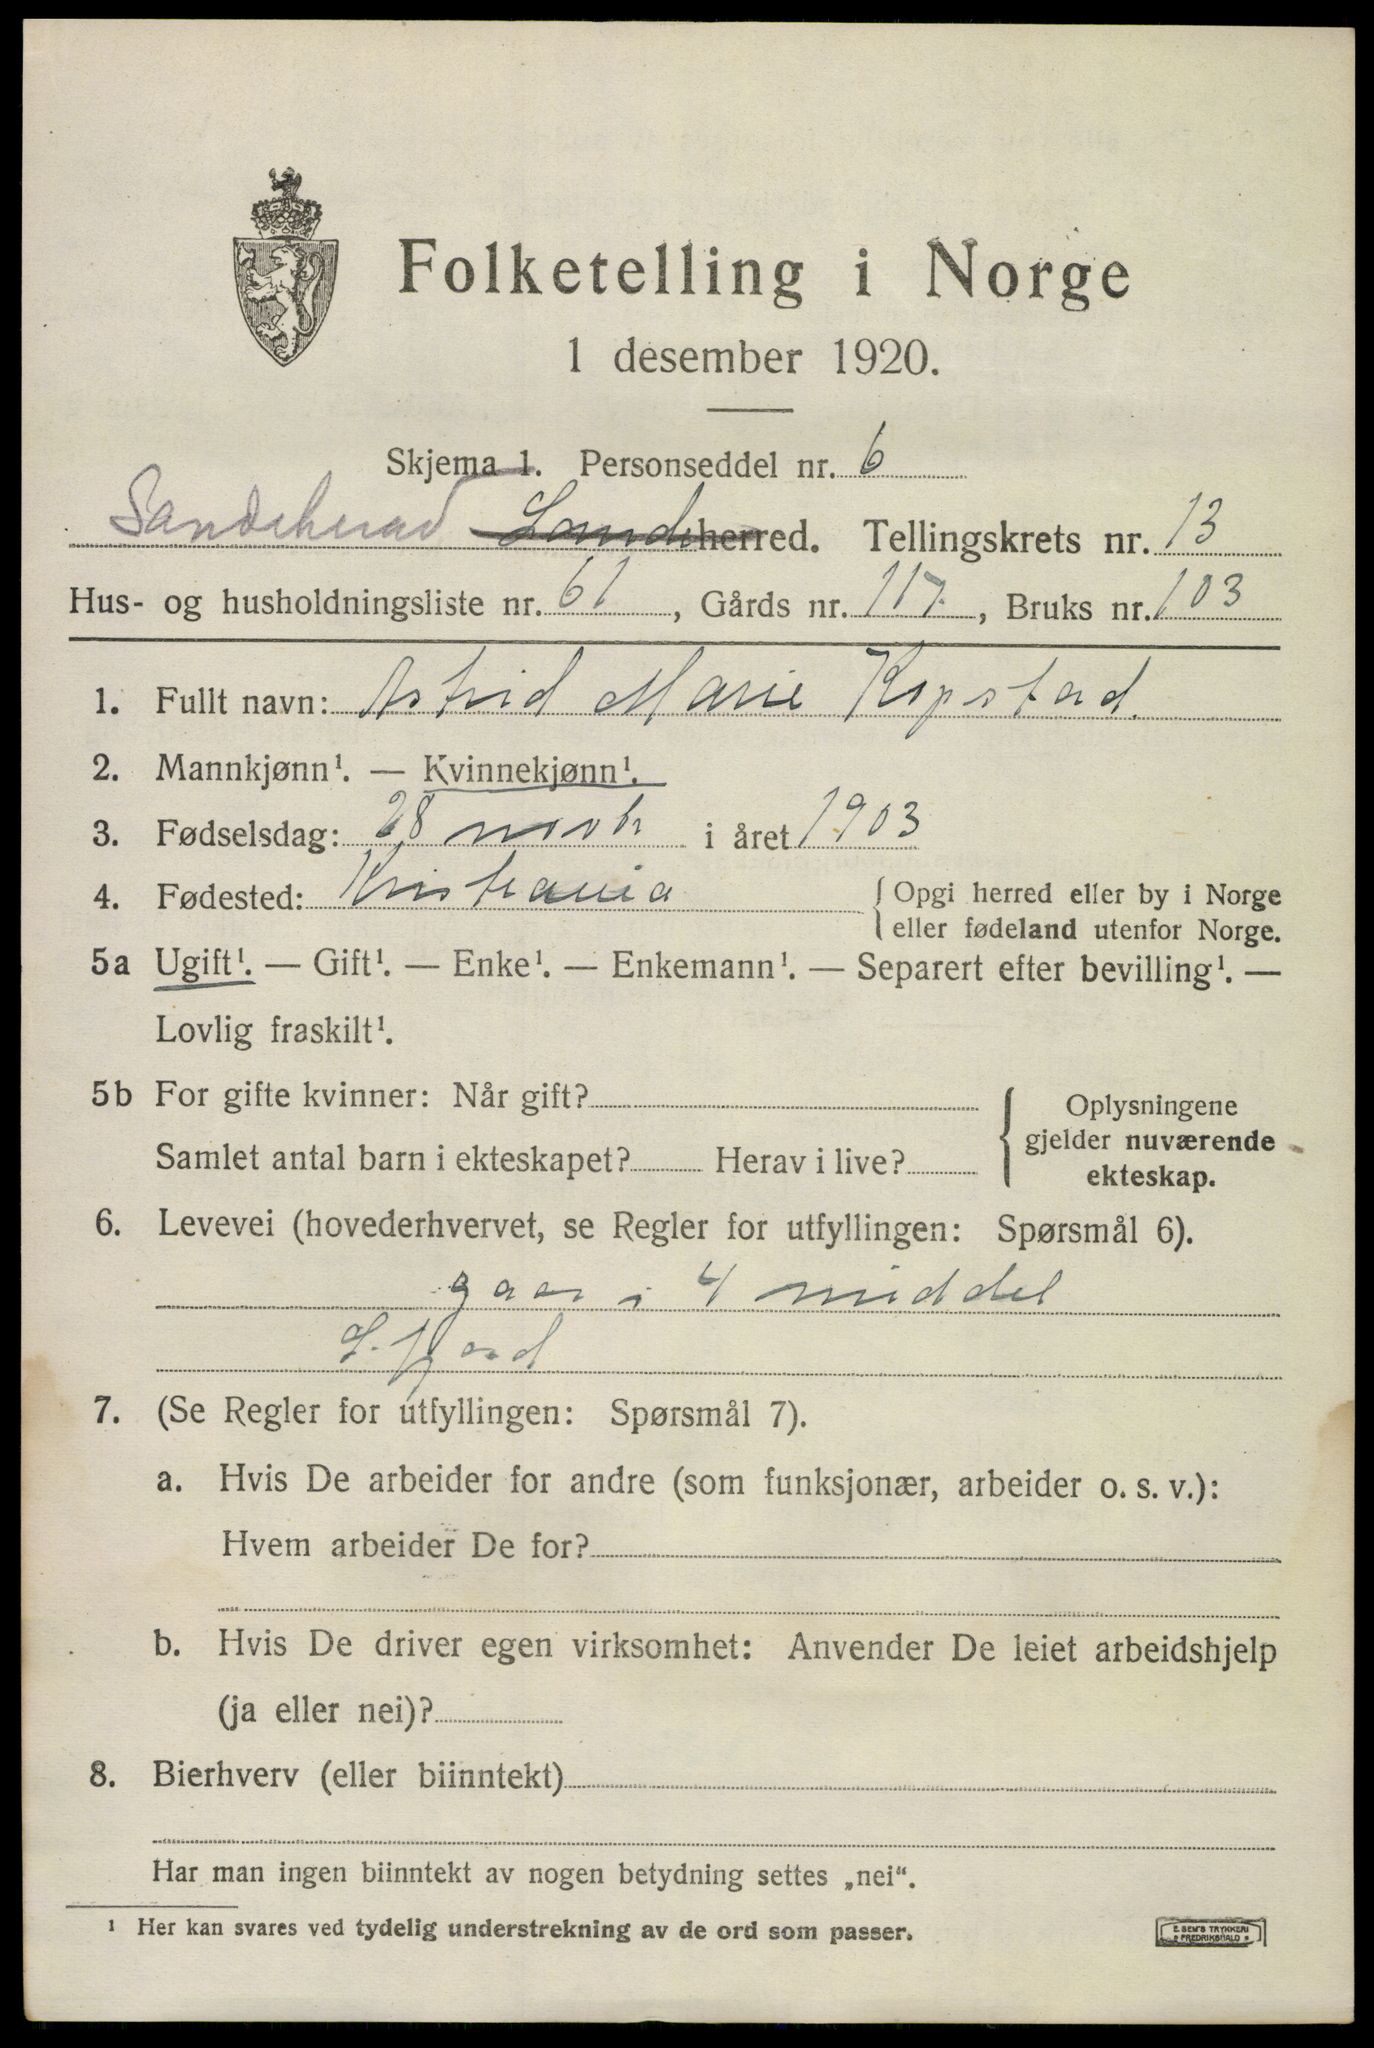 Folketelling i Norge
1 desember 1920.
Skjema 1. Personseddel nr. 6
Sandeherad Lande herred. Tellingskrets nr. 13
Hus- og husholdningsliste nr. 61, Gårds nr. 117., Bruks nr. 103
1. Fullt navn: Astrid Marie Kopstad.
2. Mannkjønn¹. — Kvinnekjønn¹.
3. Fødselsdag: 28 novbr i året 1903
4. Fødested: Kristiania { Opgi herred eller by i Norge
eller fødeland utenfor Norge.
5a Ugift¹. — Gift¹. — Enke¹. — Enkemann¹. — Separert efter bevilling¹. —
Lovlig fraskilt¹.
5b For gifte kvinner: Når gift?
Samlet antal barn i ekteskapet? Herav i live?
{ Oplysningene
gjelder nuværende
ekteskap.
6. Levevei (hovederhvervet, se Regler for utfyllingen: Spørsmål 6).
gaar i 4 middel
S.fjord
7. (Se Regler for utfyllingen: Spørsmål 7).
a. Hvis De arbeider for andre (som funksjonær, arbeider o. s. v.):
Hvem arbeider De for?
b. Hvis De driver egen virksomhet: Anvender De leiet arbeidshjelp
(ja eller nei)?
8. Bierhverv (eller biinntekt)
Har man ingen biinntekt av nogen betydning settes „nei".
¹ Her kan svares ved tydelig understrekning av de ord som passer.
E. SEM'S TRYKKERI
FREDRIKSHALD